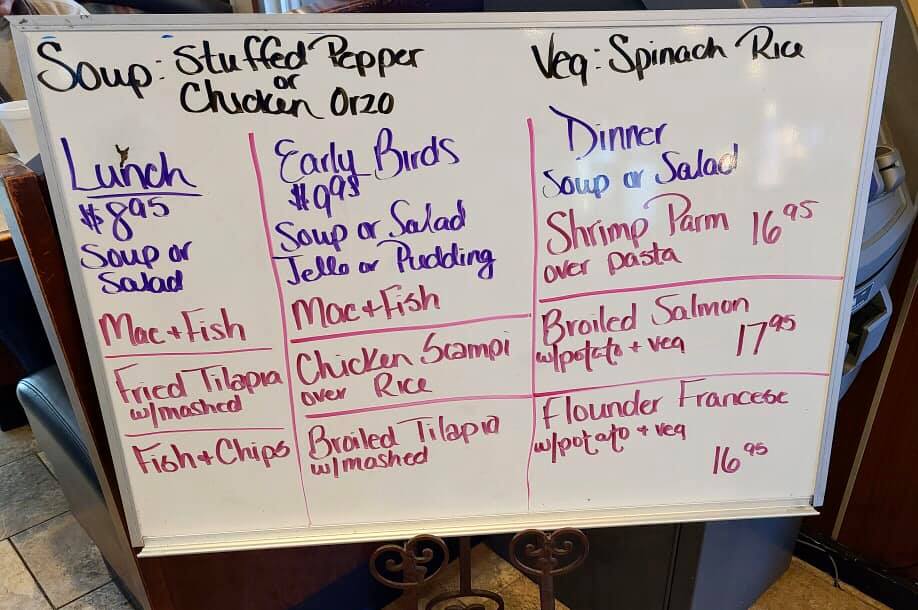 Soup: Stuffed Pepper
or
Chicken Orzo
Veg: Spinach Rice
Lunch
$8.95
Soup or
Salad
Mac + Fish
Fried Tilapia
w/mashed
Fish + Chips
Early Birds
$9.95
Soup or Salad
Jello or Pudding
Mac + Fish
Chicken Scampi
over Rice
Broiled Tilapia
w/mashed
Dinner
Soup or Salad
Shrimp Parm 16 95
over pasta
Broiled Salmon
w/potato + veg 17 95
Flounder Francese
w/potato + veg
16 95